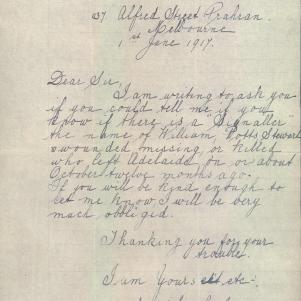 37 Alfred Street Prahran.
Melbourne
1st June 1917.
Dear Sir,
I am writing to ask you
if you could tell me if you
know if there is a "Signaller"
the name of William Potts Stewart
wounded missing or killed
who left Adelaide on or about
October twelve months ago.
If you will be kind enough to
let me know I will be very
much obbliged.
Thanking you for your
trouble.
I am Yours etc.